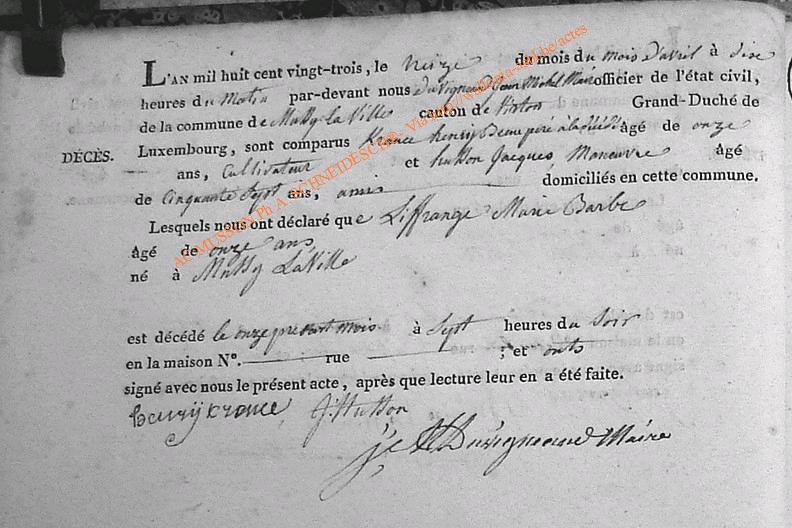 L'AN mil huit cent vingt-trois, le du mois du mois d'avril à dix
heures du Matin par-devant nous Duvigneaud Jean Michel Maire officier de l'état civil,
de la commune de Mussy-la-Ville canton de Virton Grand-Duché de
DÉCÈS. Luxembourg, sont comparus france henry âgé de onze
ans, Cultivateur et husson Jacques, Maneuvre Âgé
de Cinquante Sept ans, amis domiciliés en cette commune.
Lesquels nous ont déclaré que Liffrange Marie Barbe
âgé de onze ans
né à Mussy LaVille
est décédé le onze présent mois à Sept heures du Soir
en la maison N°. rue ; et onts
signé avec nous le présent acte, après que lecture leur en a été faite.
henrij france J. Husson
Duvigneaud Maire